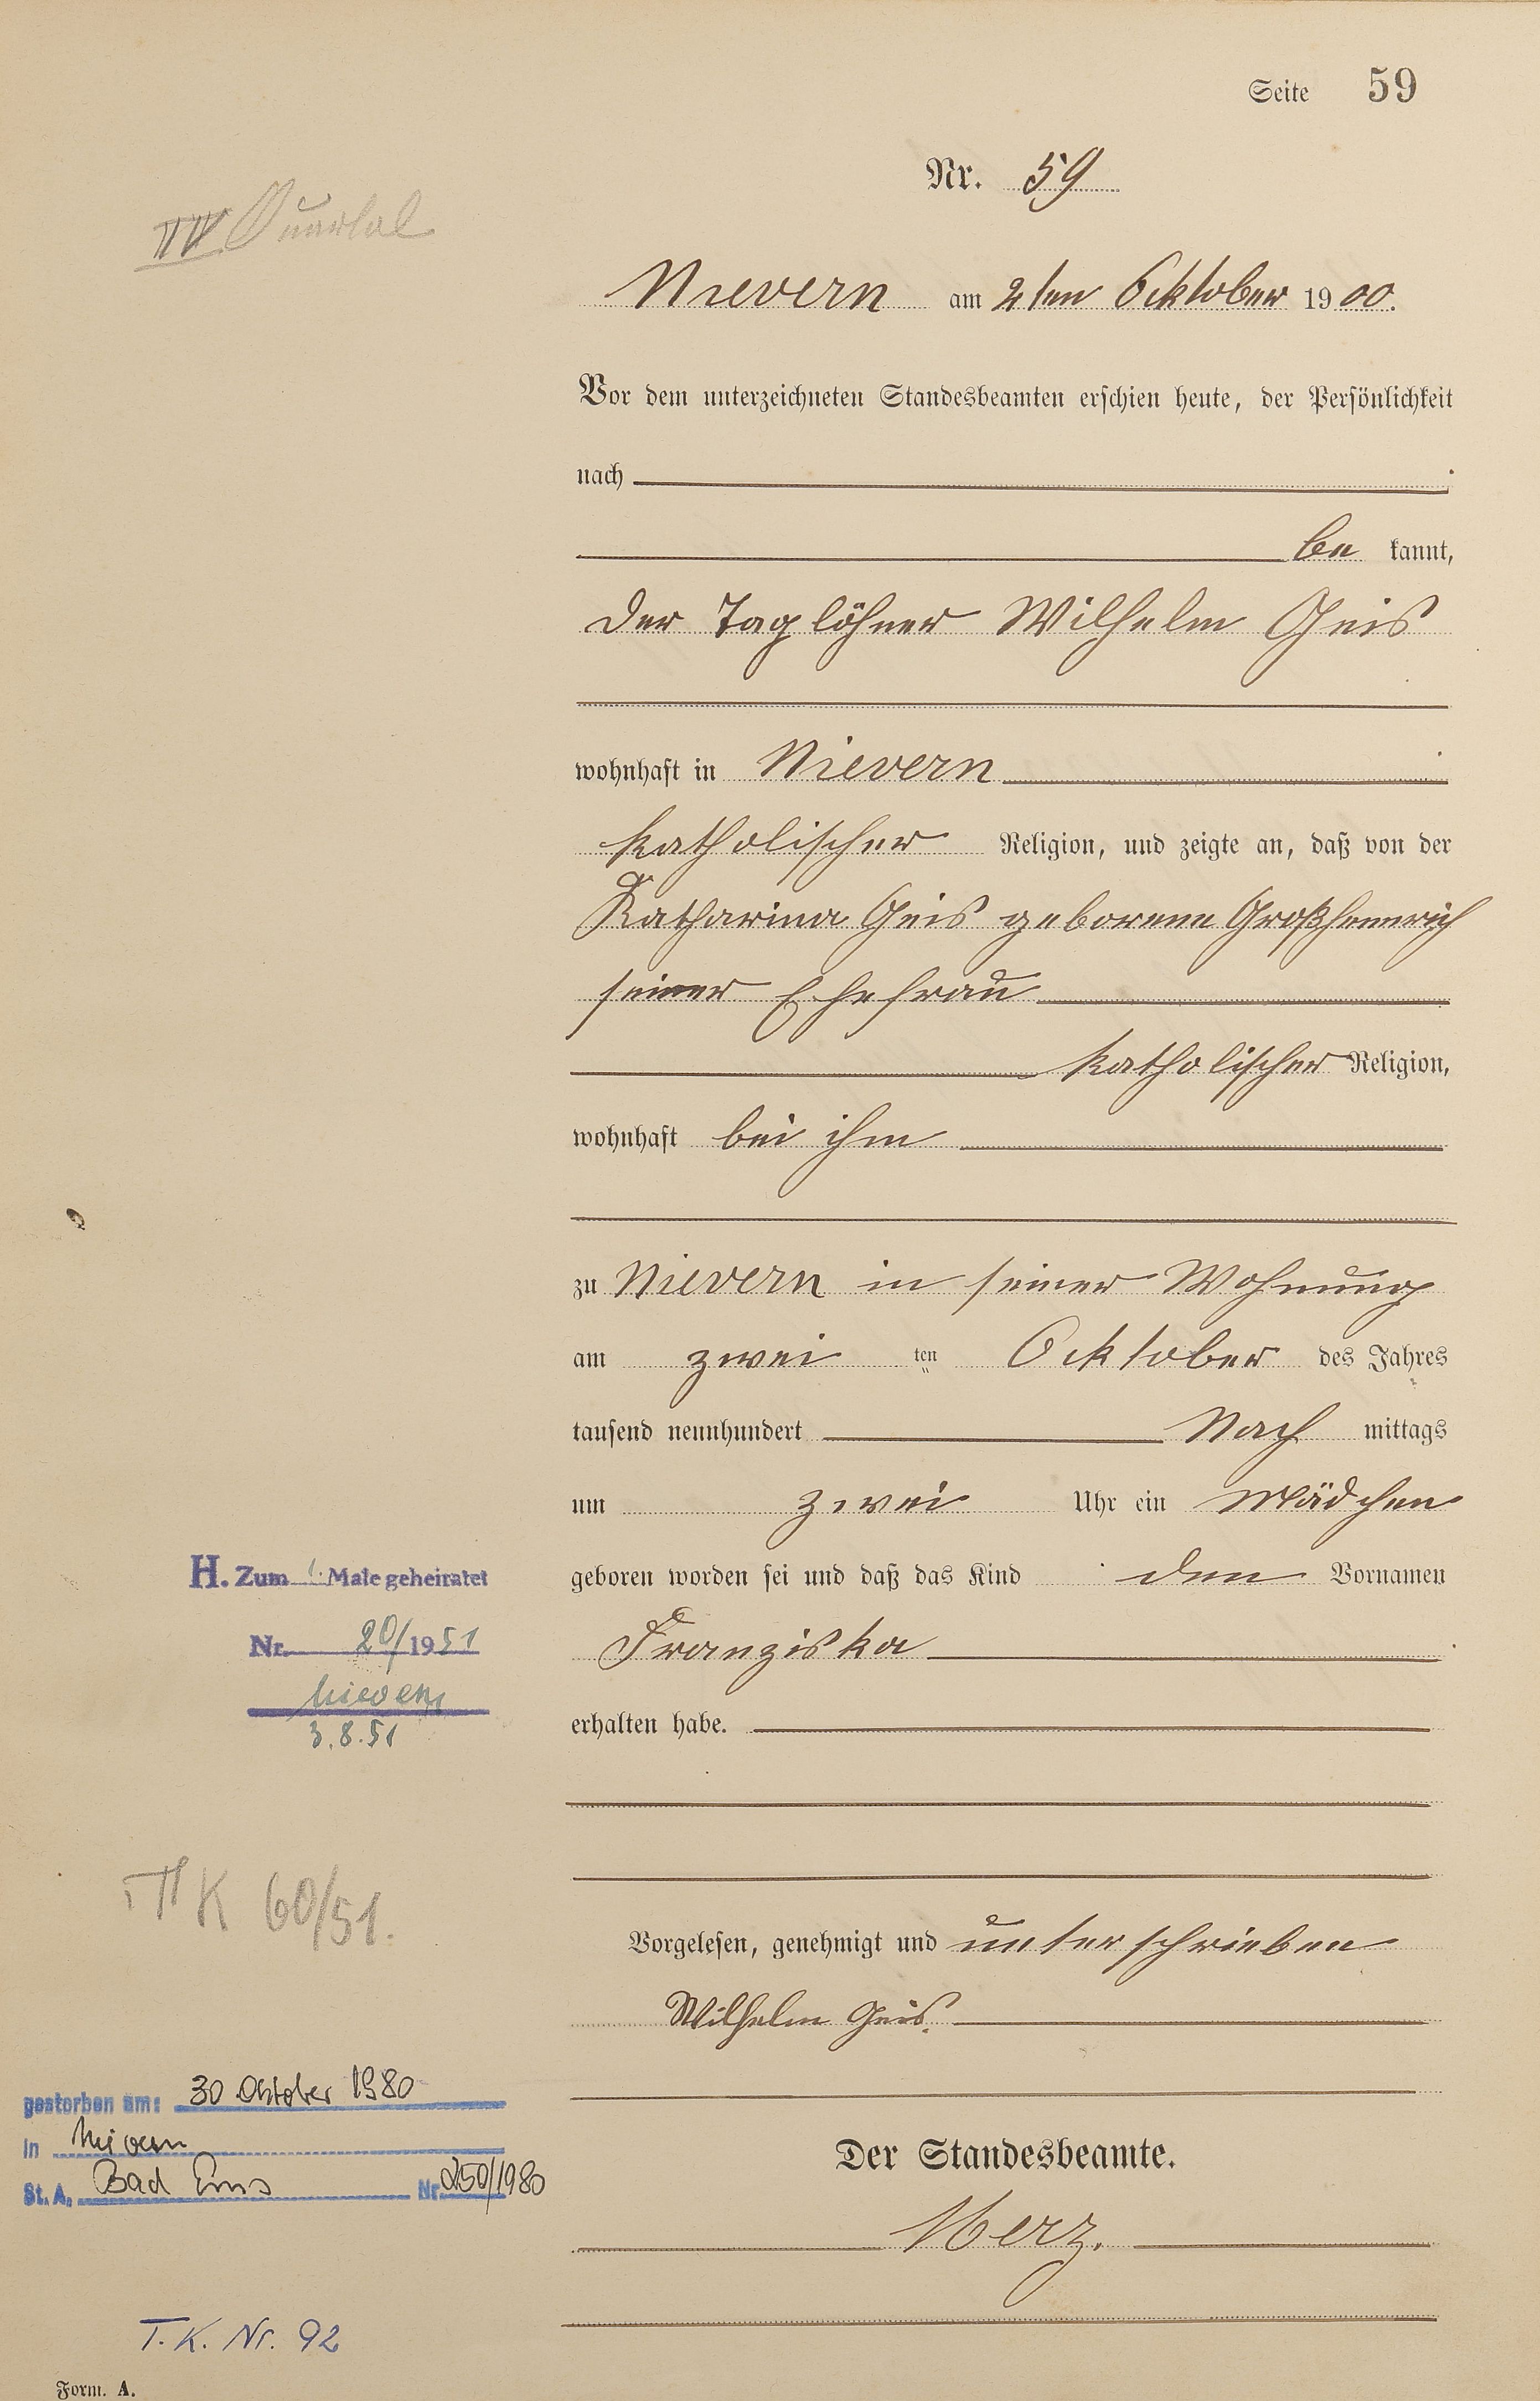 Seite 59
Nr. 59
IV Quartal
Nievern am 2ten Oktober 1900.
Vor dem unterzeichneten Standesbeamten erschien heute, der Persönlichkeit
nach
be kannt,
der Taglöhner Wilhelm Geis
wohnhaft in Nievern
katholischer Religion, und zeigte an, daß von der
Katharina Geis geborene Großhennrich
seiner Ehefrau
katholischer Religion,
wohnhaft bei ihm
zu Nievern in seiner Wohnung
am zwei ten Oktober des Jahres
tausend neunhundert Nach mittags
um zwei Uhr ein Mädchen
geboren worden sei und daß das Kind den Vornamen
Franziska
erhalten habe.
H. Zum 1. Male geheiratet
Nr. 20/1951
Nievern
3.8.51
K 60/51.
Vorgelesen, genehmigt und unterschrieben
Wilhelm Geis.
gestorben am: 30 Oktober 1980
in Nievern
St. A. Bad Ems Nr. 250/1980
Der Standesbeamte.
Merz.
T. K. Nr. 92
Form. A.